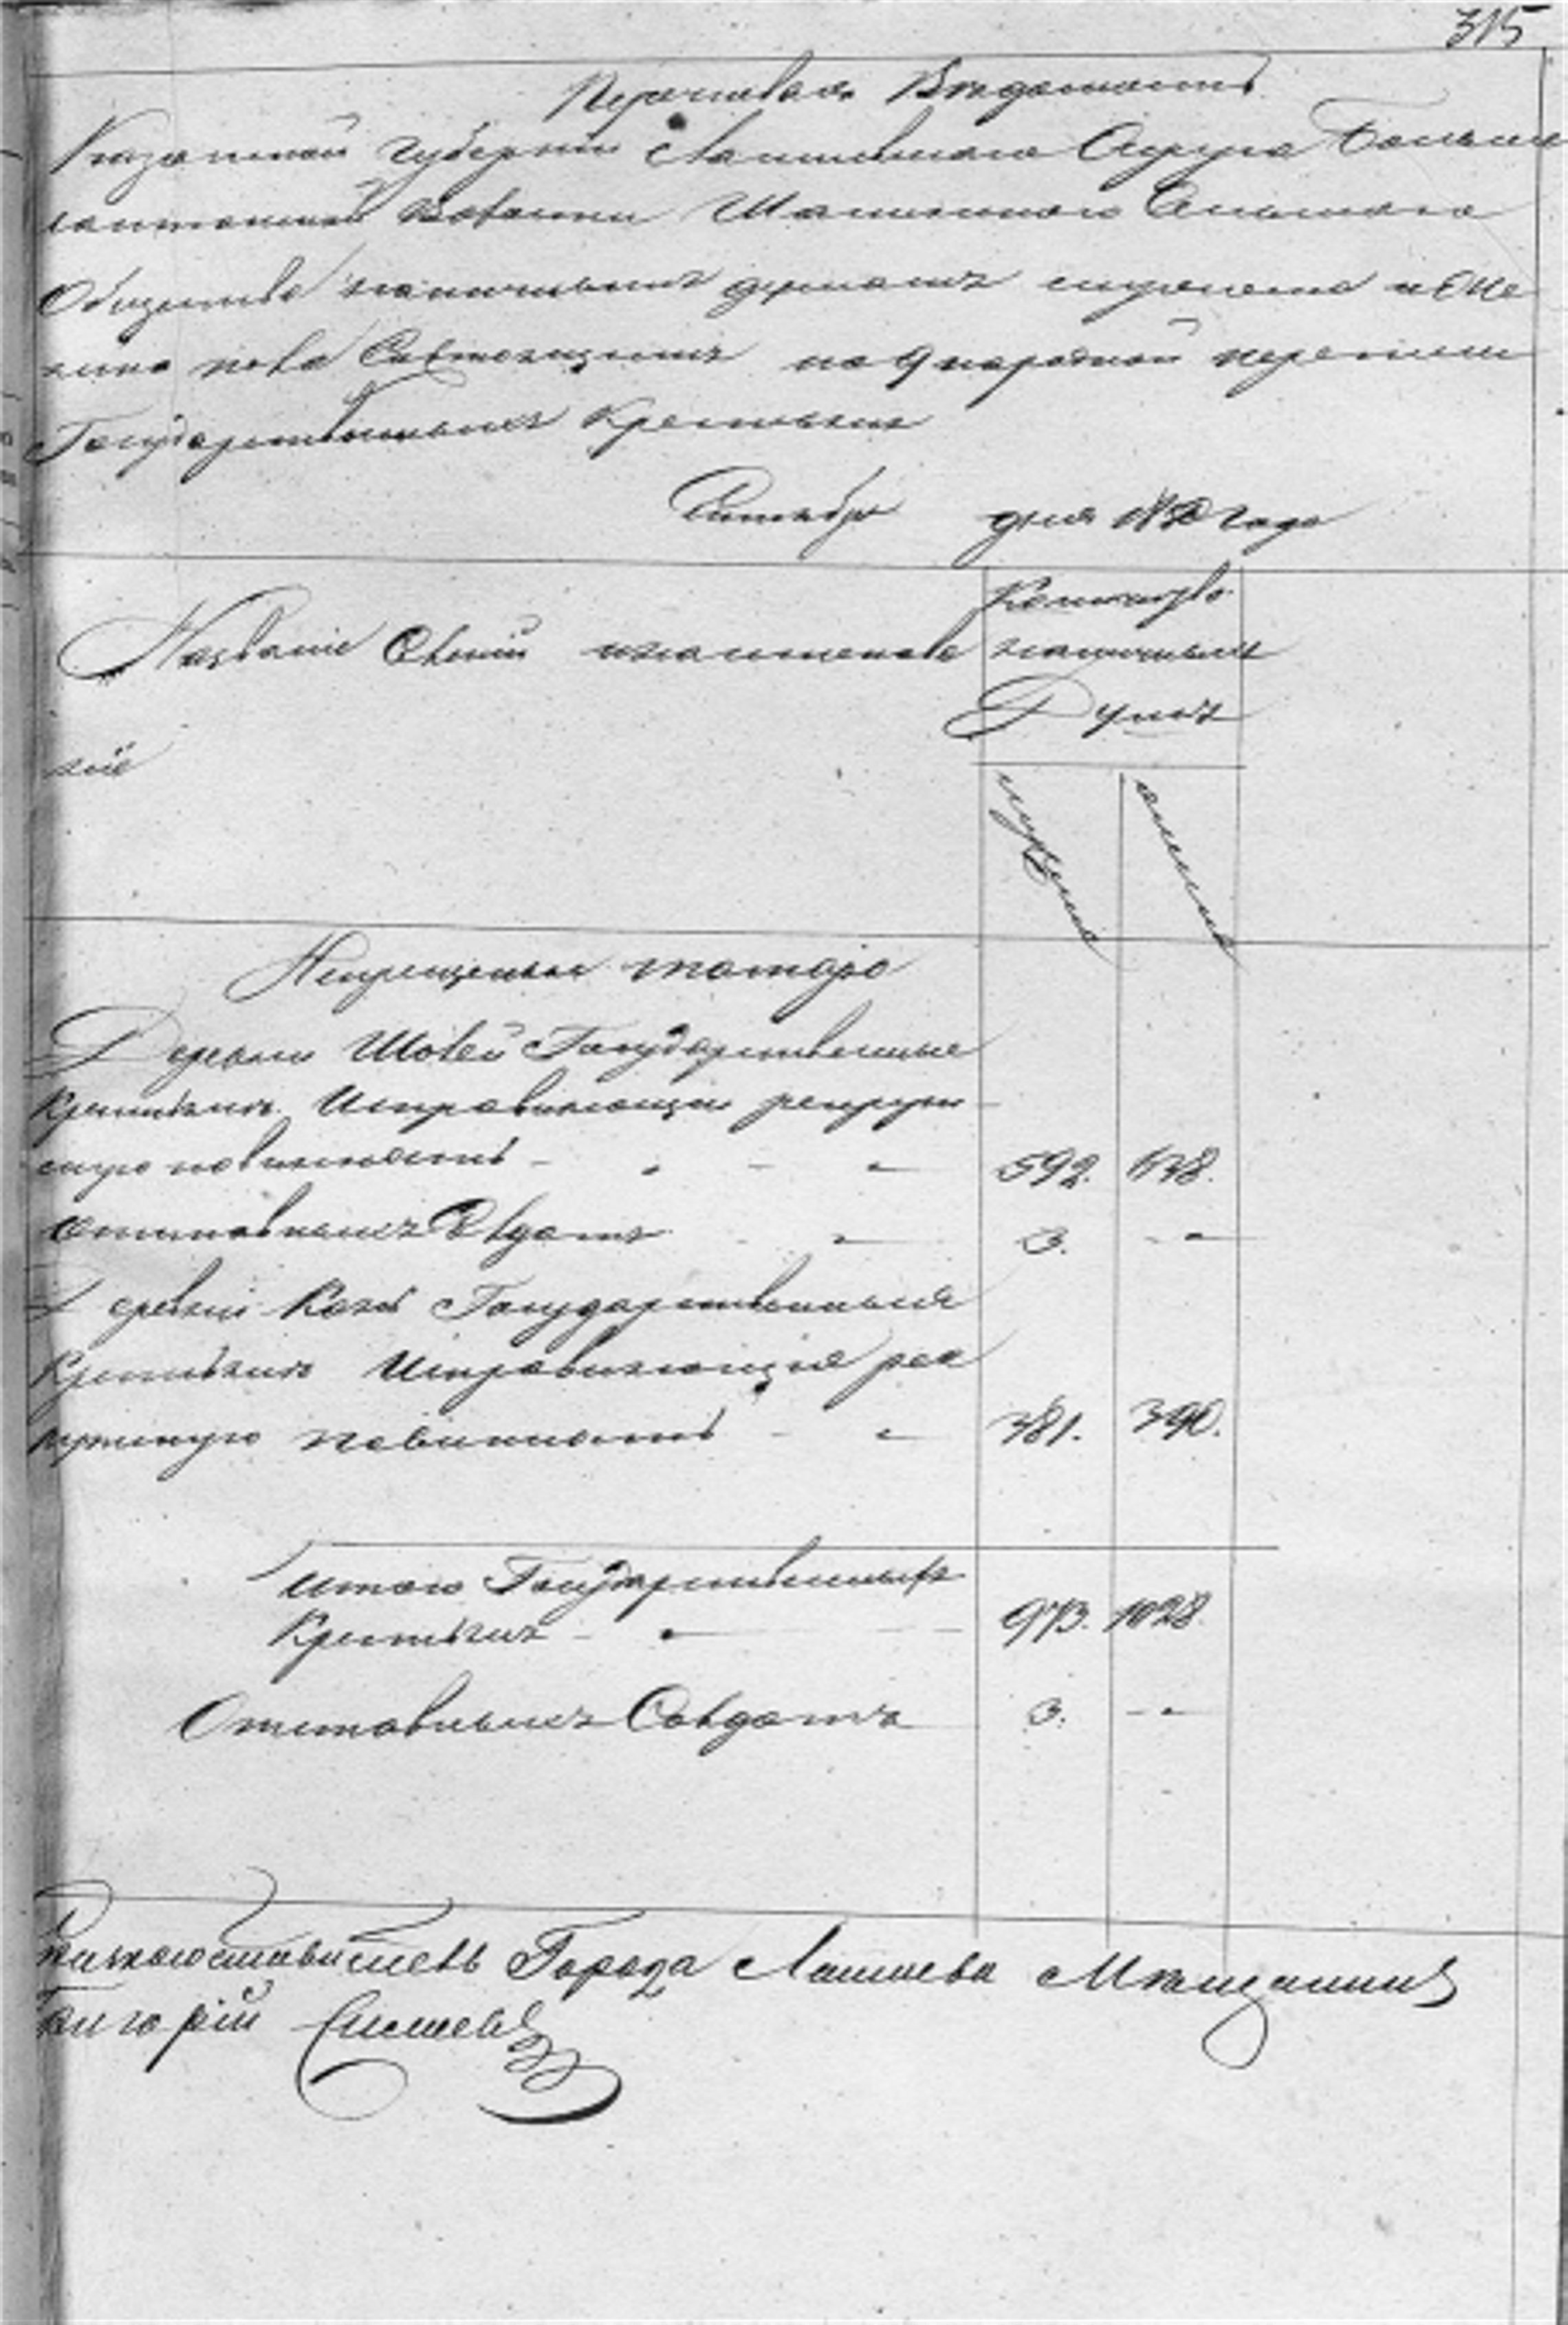 315
Перечневая Ведомость
Казанской Губернии Лаишевскаго Округа Больше
волости Сельскаго
Общества наличныхъ душамъ мужеска и Же
нска пола Состоящимъ по 9 народной переписи
Государственныхъ Крестьянъ
Сентября дня 1850 года
Названіе Селеній и наименова
ніе
Количество
наличныхъ
Душъ
мужска
женска
Некрещеные татары
Деревни Шовей Государственные
Крестьяне Исправляющіе рекрут
скую повинность
592. 638.
отставныхъ Солдатъ
3. -
Деревни Государственныя
Крестьяне Исправляющія рек
рутскую повинность
381. 390.
Итого Государственныхъ
Крестьянъ
973. 1028.
Отставныхъ Солдатъ
3. -
Города Лаишева Мещанинъ
Григорій